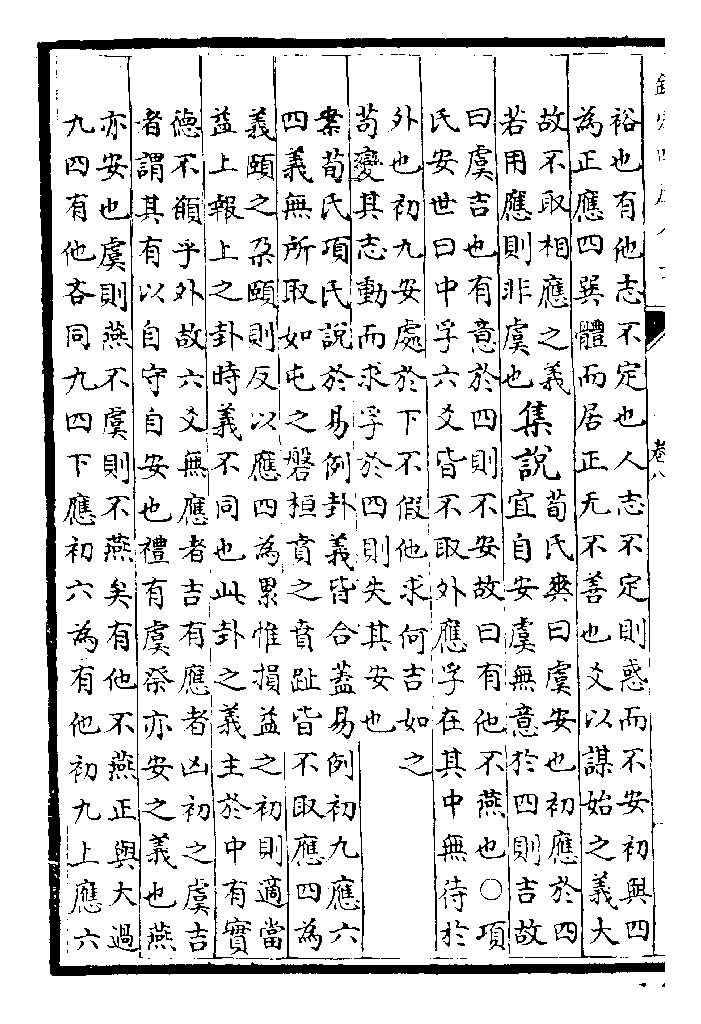 卷八
裕也有他志不定也人志不定則惑而不安初與四
為正應四巽體而居正无不善也爻以謀始之義大
故不取相應之義
若用應則非虞也
集說
荀氏爽曰虞安也初應於四
宜自安虞無意於四則吉故
曰虞吉也有意於四則不安故曰有他不燕也○項
氏安世曰中孚六爻皆不取外應孚在其中無待於
外也初九安處於下不假他求何吉如之
苟變其志動而求孚於四則失其安也
案荀氏項氏說於易例卦義皆合蓋易例初九應六
四義無所取如屯之磐桓賁之賁趾皆不取應四為
義頤之朶頤則反以應四為累惟損益之初則適當
益上報上之卦時義不同也此卦之義主於中有實
德不願乎外故六爻無應者吉有應者凶初之虞吉
者謂其有以自守自安也禮有虞祭亦安之義也燕
亦安也虞則燕不虞則不燕矣有他不燕正與大過
九四有他吝同九四下應初六為有他初九上應六